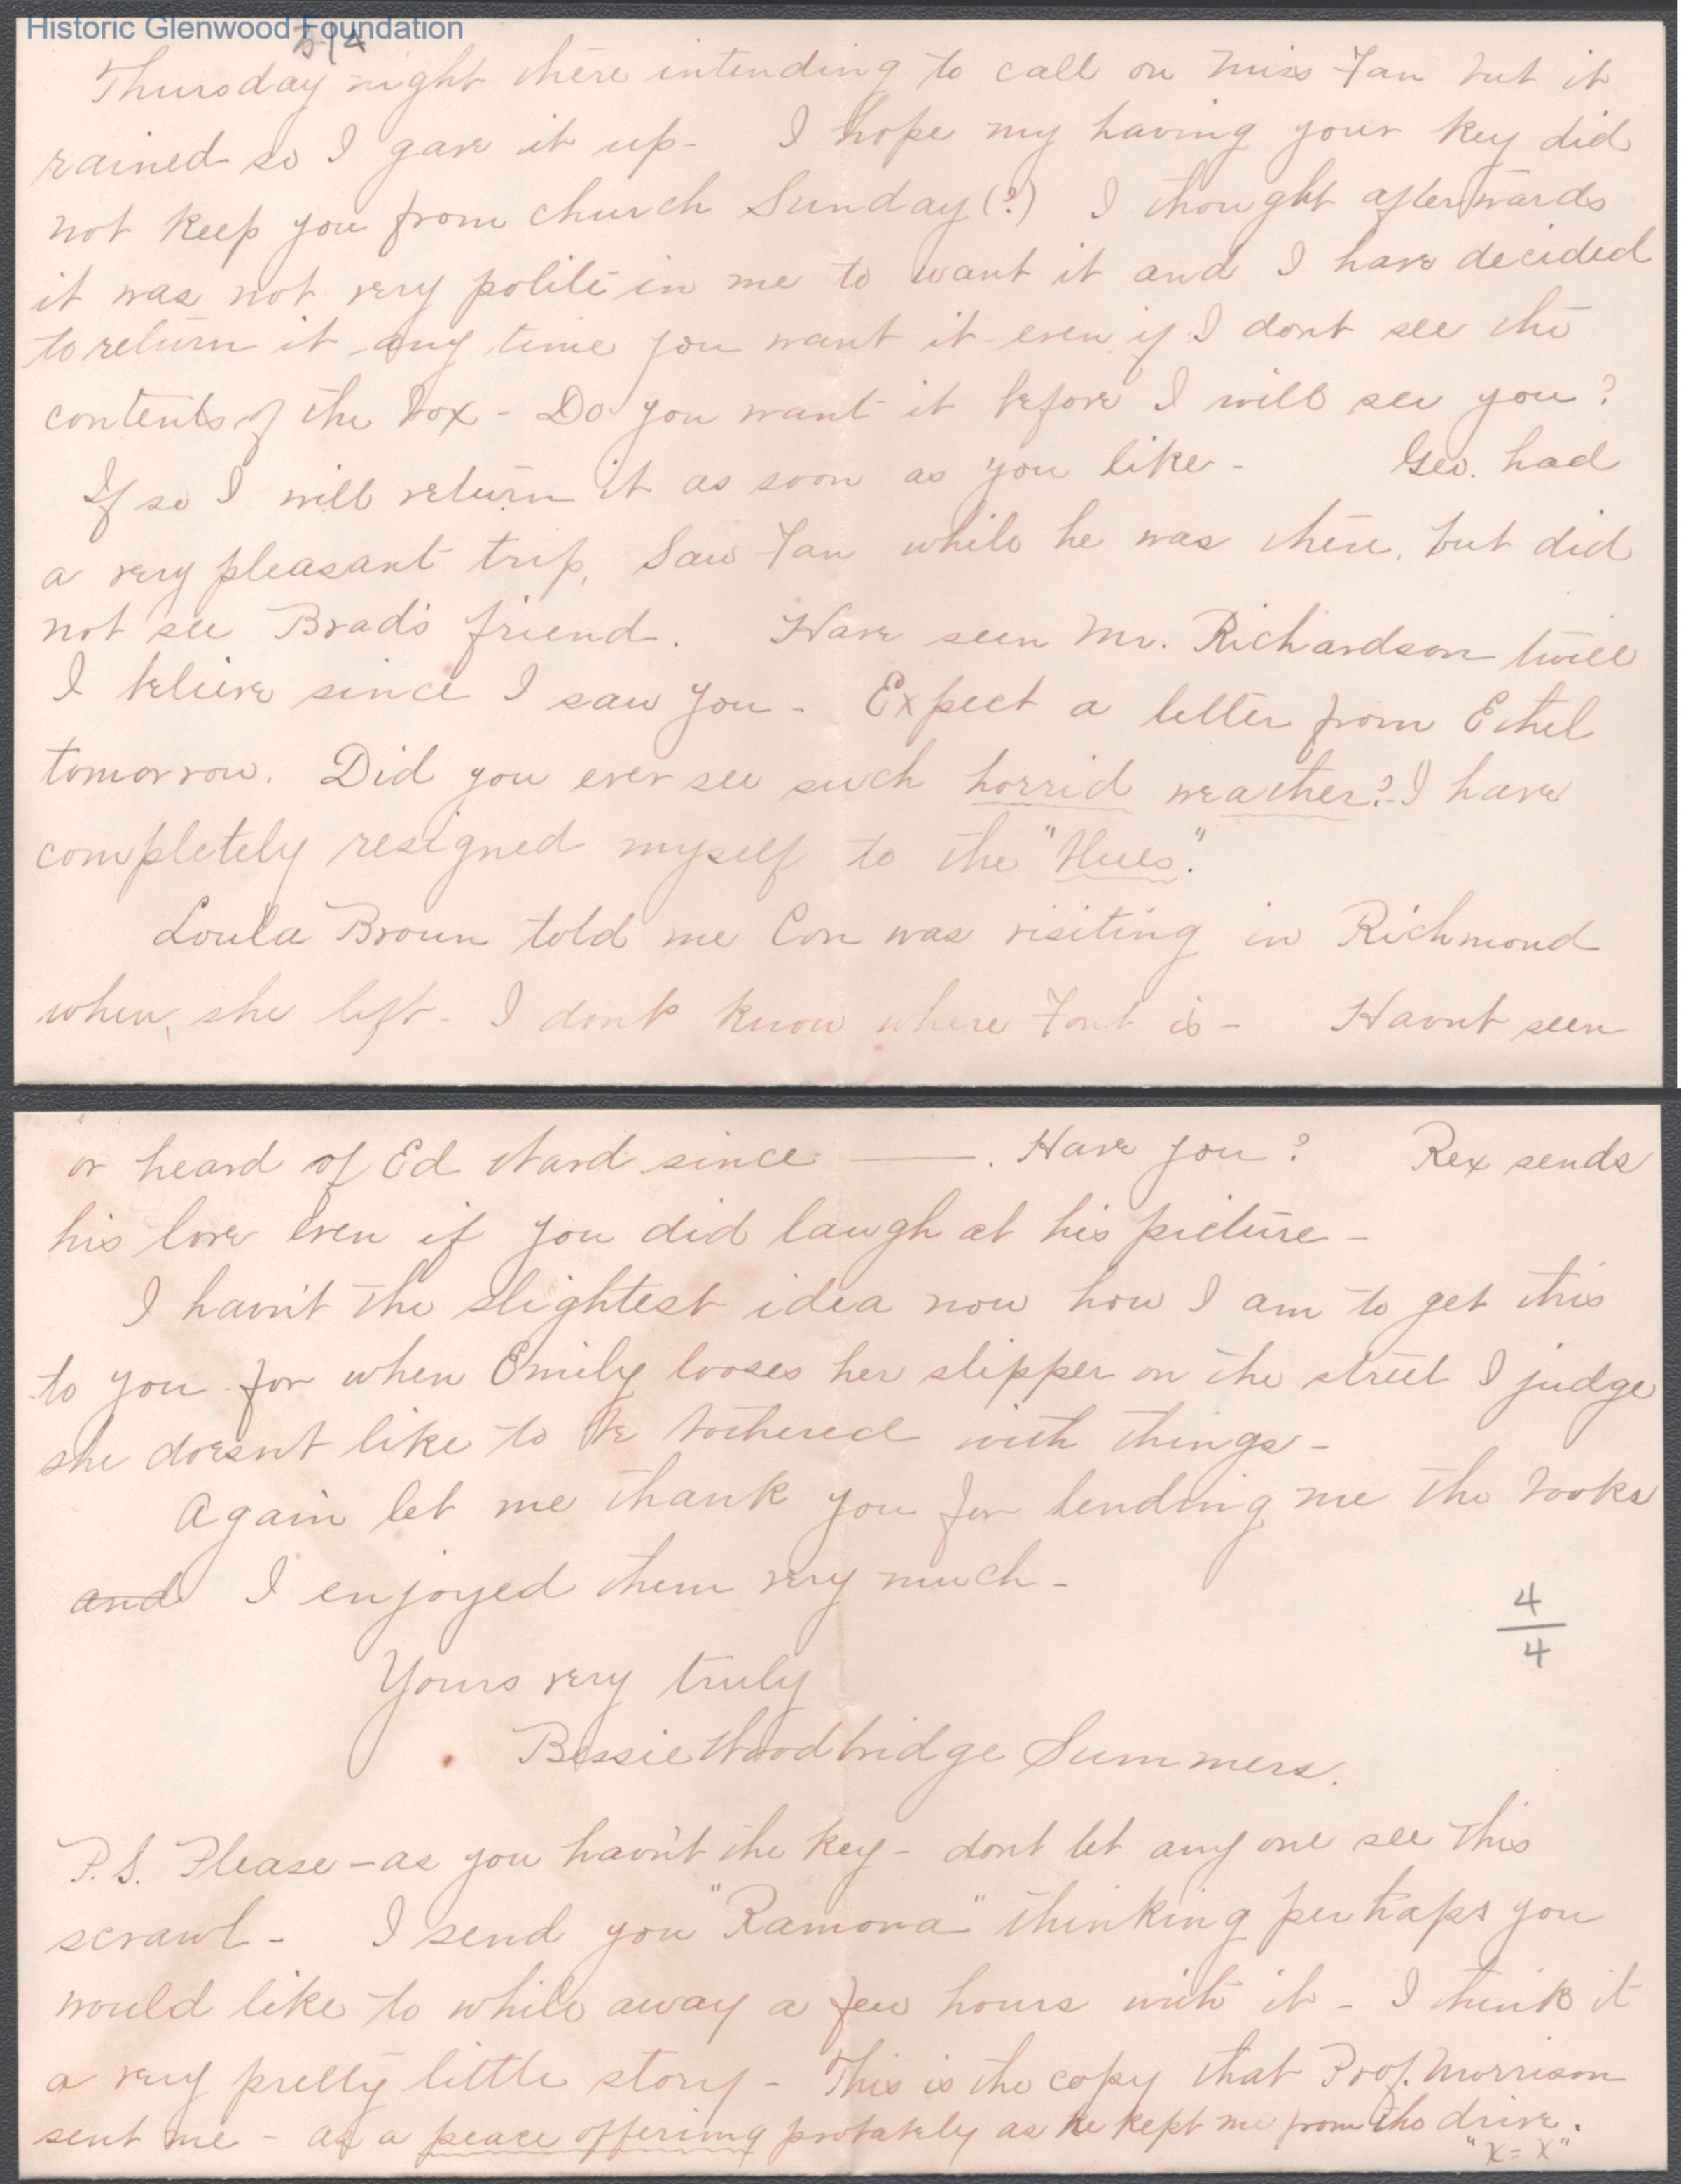 Historic Glenwood Foundation
Thursday night there intending to call on Miss Fan but it
rained so I gave it up - I hope my having your key did
not keep you from church Sunday (?) I thought afterwards
it was not very polite in me to want it and I have decided
to return it any time you want it even if I dont see the
contents of the box - Do you want it before I will see you?
If so I will return it as soon as you like - Geo. had
a very pleasant trip, Saw Fan while he was there, but did
not see Brad's friend. Have seen Mr. Richardson twice
I believe since I saw you - Expect a letter from Ethel
tomorrow. Did you ever see such horrid weather? - I have
completely resigned myself to the "blues".
Loula Broun told me Con was visiting in Richmond
when she left - I dont know where Font is - Havnt seen
or heard of Ed Ward since ——. Have you? Rex sends
his love even if you did laugh at his picture -
I havn't the slightest idea now how I am to get this
to you for when Emily looses her slipper on the street I judge
she doesn't like to be bothered with things -
Again let me thank you for lending me the books
and I enjoyed them very much -
4
4
Yours very truly
Bessie Woodbridge Summers.
P.S. Please - as you havn't the key - dont let any one see this
scrawl - I send you "Ramona" thinking perhaps you
would like to while away a few hours with it - I think it
a very pretty little story - This is the copy that Prof. Morrison
sent me - as a peace offering probably as he kept me from the drive.
"X = X"